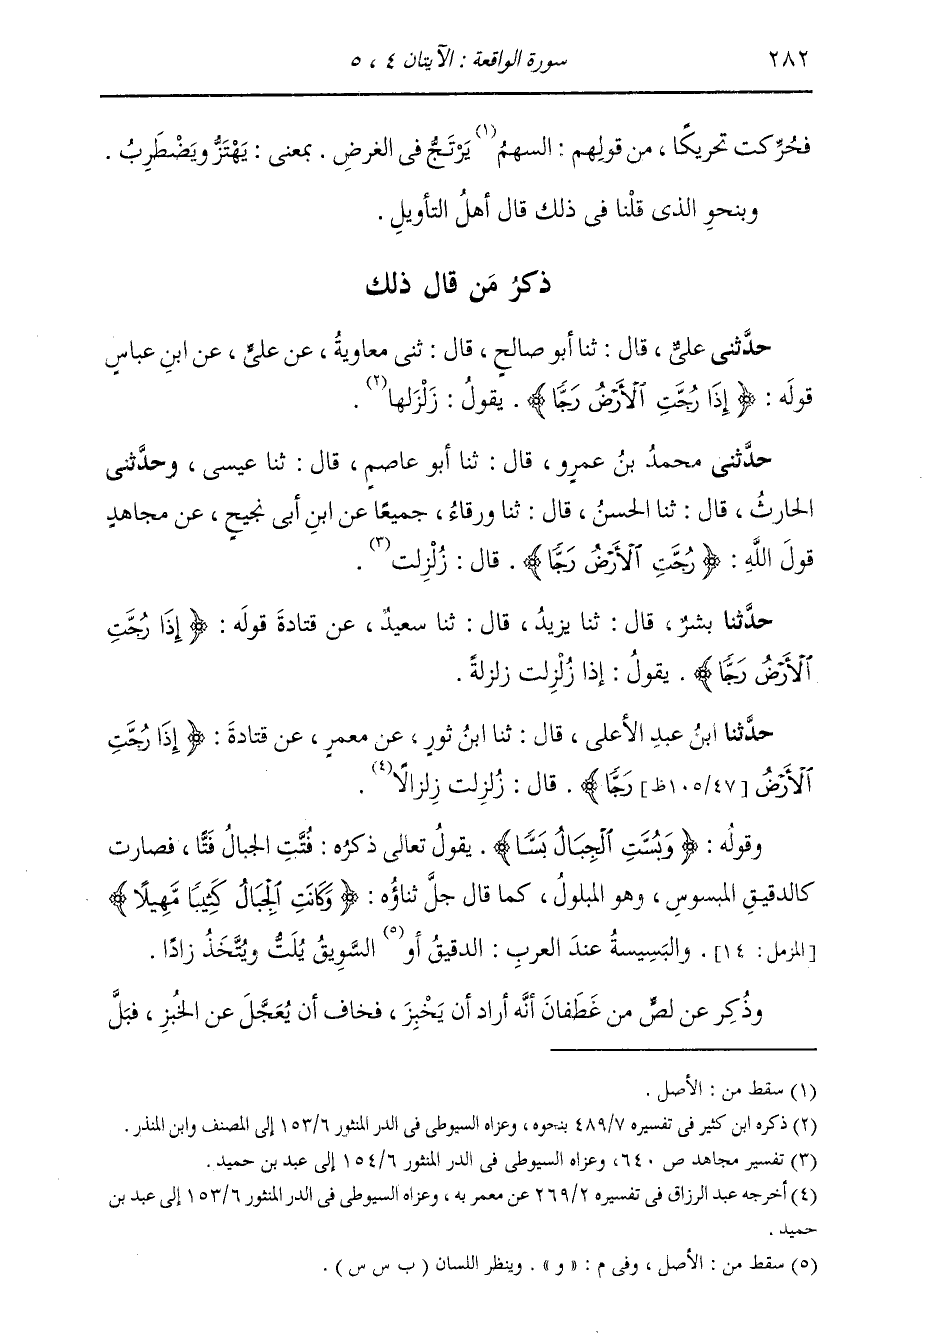 ٢٨٢ سورة الواقعة : الآيتان ٤ ، ٥
فحُرِّكت تحريكًا ، من قولِهم : السهمُ(١) يَرْتَجُّ فى الغرضِ . بمعنى : يَهْتَزُّ ويَضْطَرِبُ .
وبنحوِ الذى قلْنا فى ذلك قال أهلُ التأويلِ .
ذكرُ مَن قال ذلك
حدَّثنى علىٌّ ، قال : ثنا أبو صالحٍ ، قال : ثنى معاويةُ ، عن علىٍّ ، عن ابنِ عباسٍ
قولَه : ﴿ إِذَا رُجَّتِ ٱلْأَرْضُ رَجًّا ﴾ . يقولُ : زَلْزَلها(٢) .
حدَّثنى محمدُ بنُ عمرٍو ، قال : ثنا أبو عاصمٍ ، قال : ثنا عيسى ، وحدَّثنى
الحارثُ ، قال : ثنا الحسنُ ، قال : ثنا ورقاءُ ، جميعًا عن ابنِ أبى نجيحٍ ، عن مجاهدٍ
قولَ اللَّهِ : ﴿ رُجَّتِ ٱلْأَرْضُ رَجًّا ﴾ . قال : زُلْزِلت(٣) .
حدَّثنا بشرٌ ، قال : ثنا يزيدُ ، قال : ثنا سعيدٌ ، عن قتادةَ قولَه : ﴿ إِذَا رُجَّتِ
ٱلْأَرْضُ رَجًّا ﴾ . يقولُ : إذا زُلْزِلت زلزلةً .
حدَّثنا ابنُ عبدِ الأعلى ، قال : ثنا ابنُ ثورٍ ، عن معمرٍ ، عن قتادةَ : ﴿ إِذَا رُجَّتِ
ٱلْأَرْضُ [٤٧/١٠٥ظ] رَجًّا ﴾ . قال : زُلزِلت زِلزالًا(٤) .
وقولُه : ﴿ وَبُسَّتِ ٱلْجِبَالُ بَسًّا ﴾ . يقولُ تعالى ذكرُه : فُتَّتِ الجبالُ فَتًّا ، فصارت
كالدقيقِ المبسوسِ ، وهو المبلولُ ، كما قال جلَّ ثناؤُه : ﴿ وَكَانَتِ ٱلْجِبَالُ كَثِيبًا مَّهِيلًا ﴾
[المزمل : ١٤] . والبَسِيسةُ عندَ العربِ : الدقيقُ أو(٥) السَّوِيقُ يُلَتُّ ويُتَّخَذُ زادًا .
وذُكِر عن لصٍّ من غَطَفانَ أنَّه أراد أن يَخْبِزَ ، فخاف أن يُعَجَّلَ عن الخُبزِ ، فبَلَّ
(١) سقط من : الأصل .
(٢) ذكره ابن كثير فى تفسيره ٤٨٩/٧ بنحوه ، وعزاه السيوطى فى الدر المنثور ١٥٣/٦ إلى المصنف وابن المنذر .
(٣) تفسير مجاهد ص ٦٤٠، وعزاه السيوطى فى الدر المنثور ١٥٤/٦ إلى عبد بن حميد .
(٤) أخرجه عبد الرزاق فى تفسيره ٢٦٩/٢ عن معمر به ، وعزاه السيوطى فى الدر المنثور ١٥٣/٦ إلى عبد بن
حميد .
(٥) سقط من : الأصل ، وفى م : « و » . وينظر اللسان ( ب س س ) .